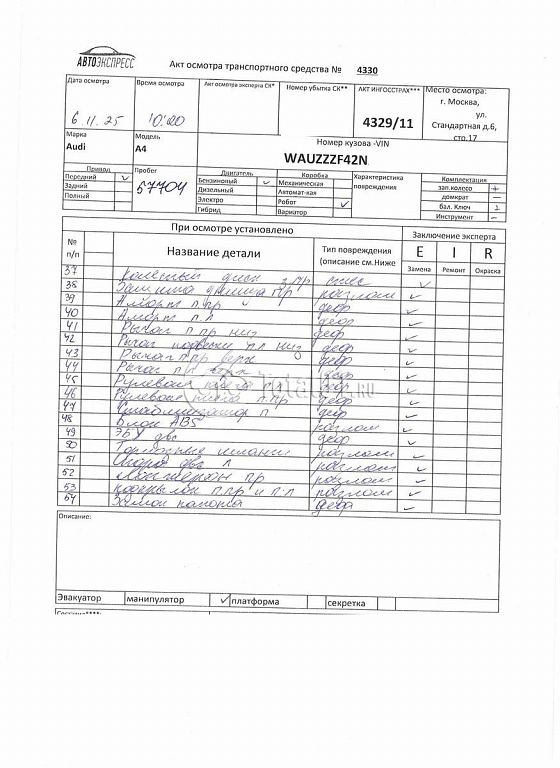 АВТОЭКСПРЕСС
Акт осмотра транспортного средства № 4330
Дата осмотра
Время осмотра
Акт осмотра эксперта СК*
Номер убытка СК**
АКТ ИНГОССТРАХ***
Место осмотра:
г. Москва,
ул.
Стандартная д.6,
стр.17
6.11.25
10:20
4329/11
Марка
Модель
Номер кузова -VIN
Audi
A4
WAUZZZF42N
Привод
Пробег
Двигатель
Коробка
Характеристика
повреждения
Комплектация
Передний
Бензиновый
Механическая
зап.колесо +
Задний
57704
Дизельный
Автомат-кая
домкрат —
Полный
Электро
Робот
бал. Ключ
Гибрид
Вариатор
Инструмент —
При осмотре установлено
Заключение эксперта
№
п/п
Название детали
Тип повреждения
(описание см.Ниже
E
I
R
Замена
Ремонт
Окраска
37 Колесный диск з.пр
38 Защита днища пр разлом
39 Аморт п.пр деф
40 Аморт п.л деф
41 Рычаг п.пр низ деф
42 Рычаг подвески п.л низ деф
43 Рычаг п.пр верх деф
44 Рычаг деф
45 Рулевая деф
46 Рулевая тяга п.пр деф
47 Стабилизатор п деф
48 Блок ABS разлом
49 ЭБУ двс деф
50 Тормозные шланги разлом
51 Опора двс л разлом
52 Лонжерон пр разлом
53 подкрылок п.пр и п.л разлом
54 Замок капота деф
.RU
Описание:
Эвакуатор
манипулятор
платформа
секретка